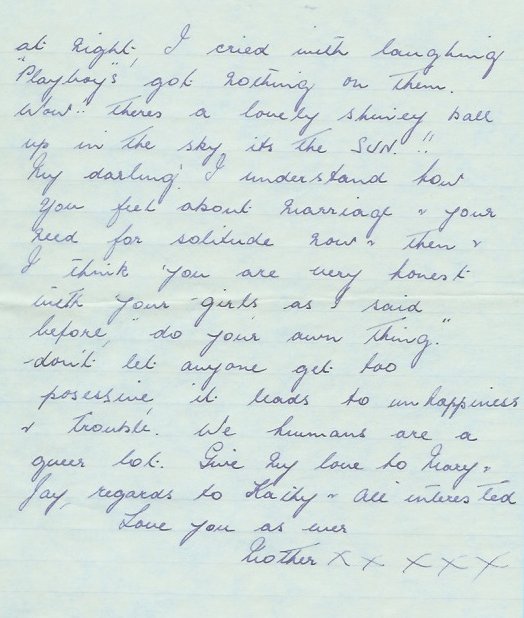 at night, I cried with laughing
"Playboy"s got nothing on them.
Wow!! theres a lovely shiney ball
up in the sky, its the SUN.!!
My darling I understand how
you feel about marriage & your
need for solitude now & then &
I think you are very honest
with your girls as I said
before, "do your own thing."
-don't let anyone get too
posessive, it leads to unhappiness
& trouble. We humans are a
queer lot. Give my love to Mary &
Jay, regards to Kathy & all interested
Love you as ever
Mother X X X X X